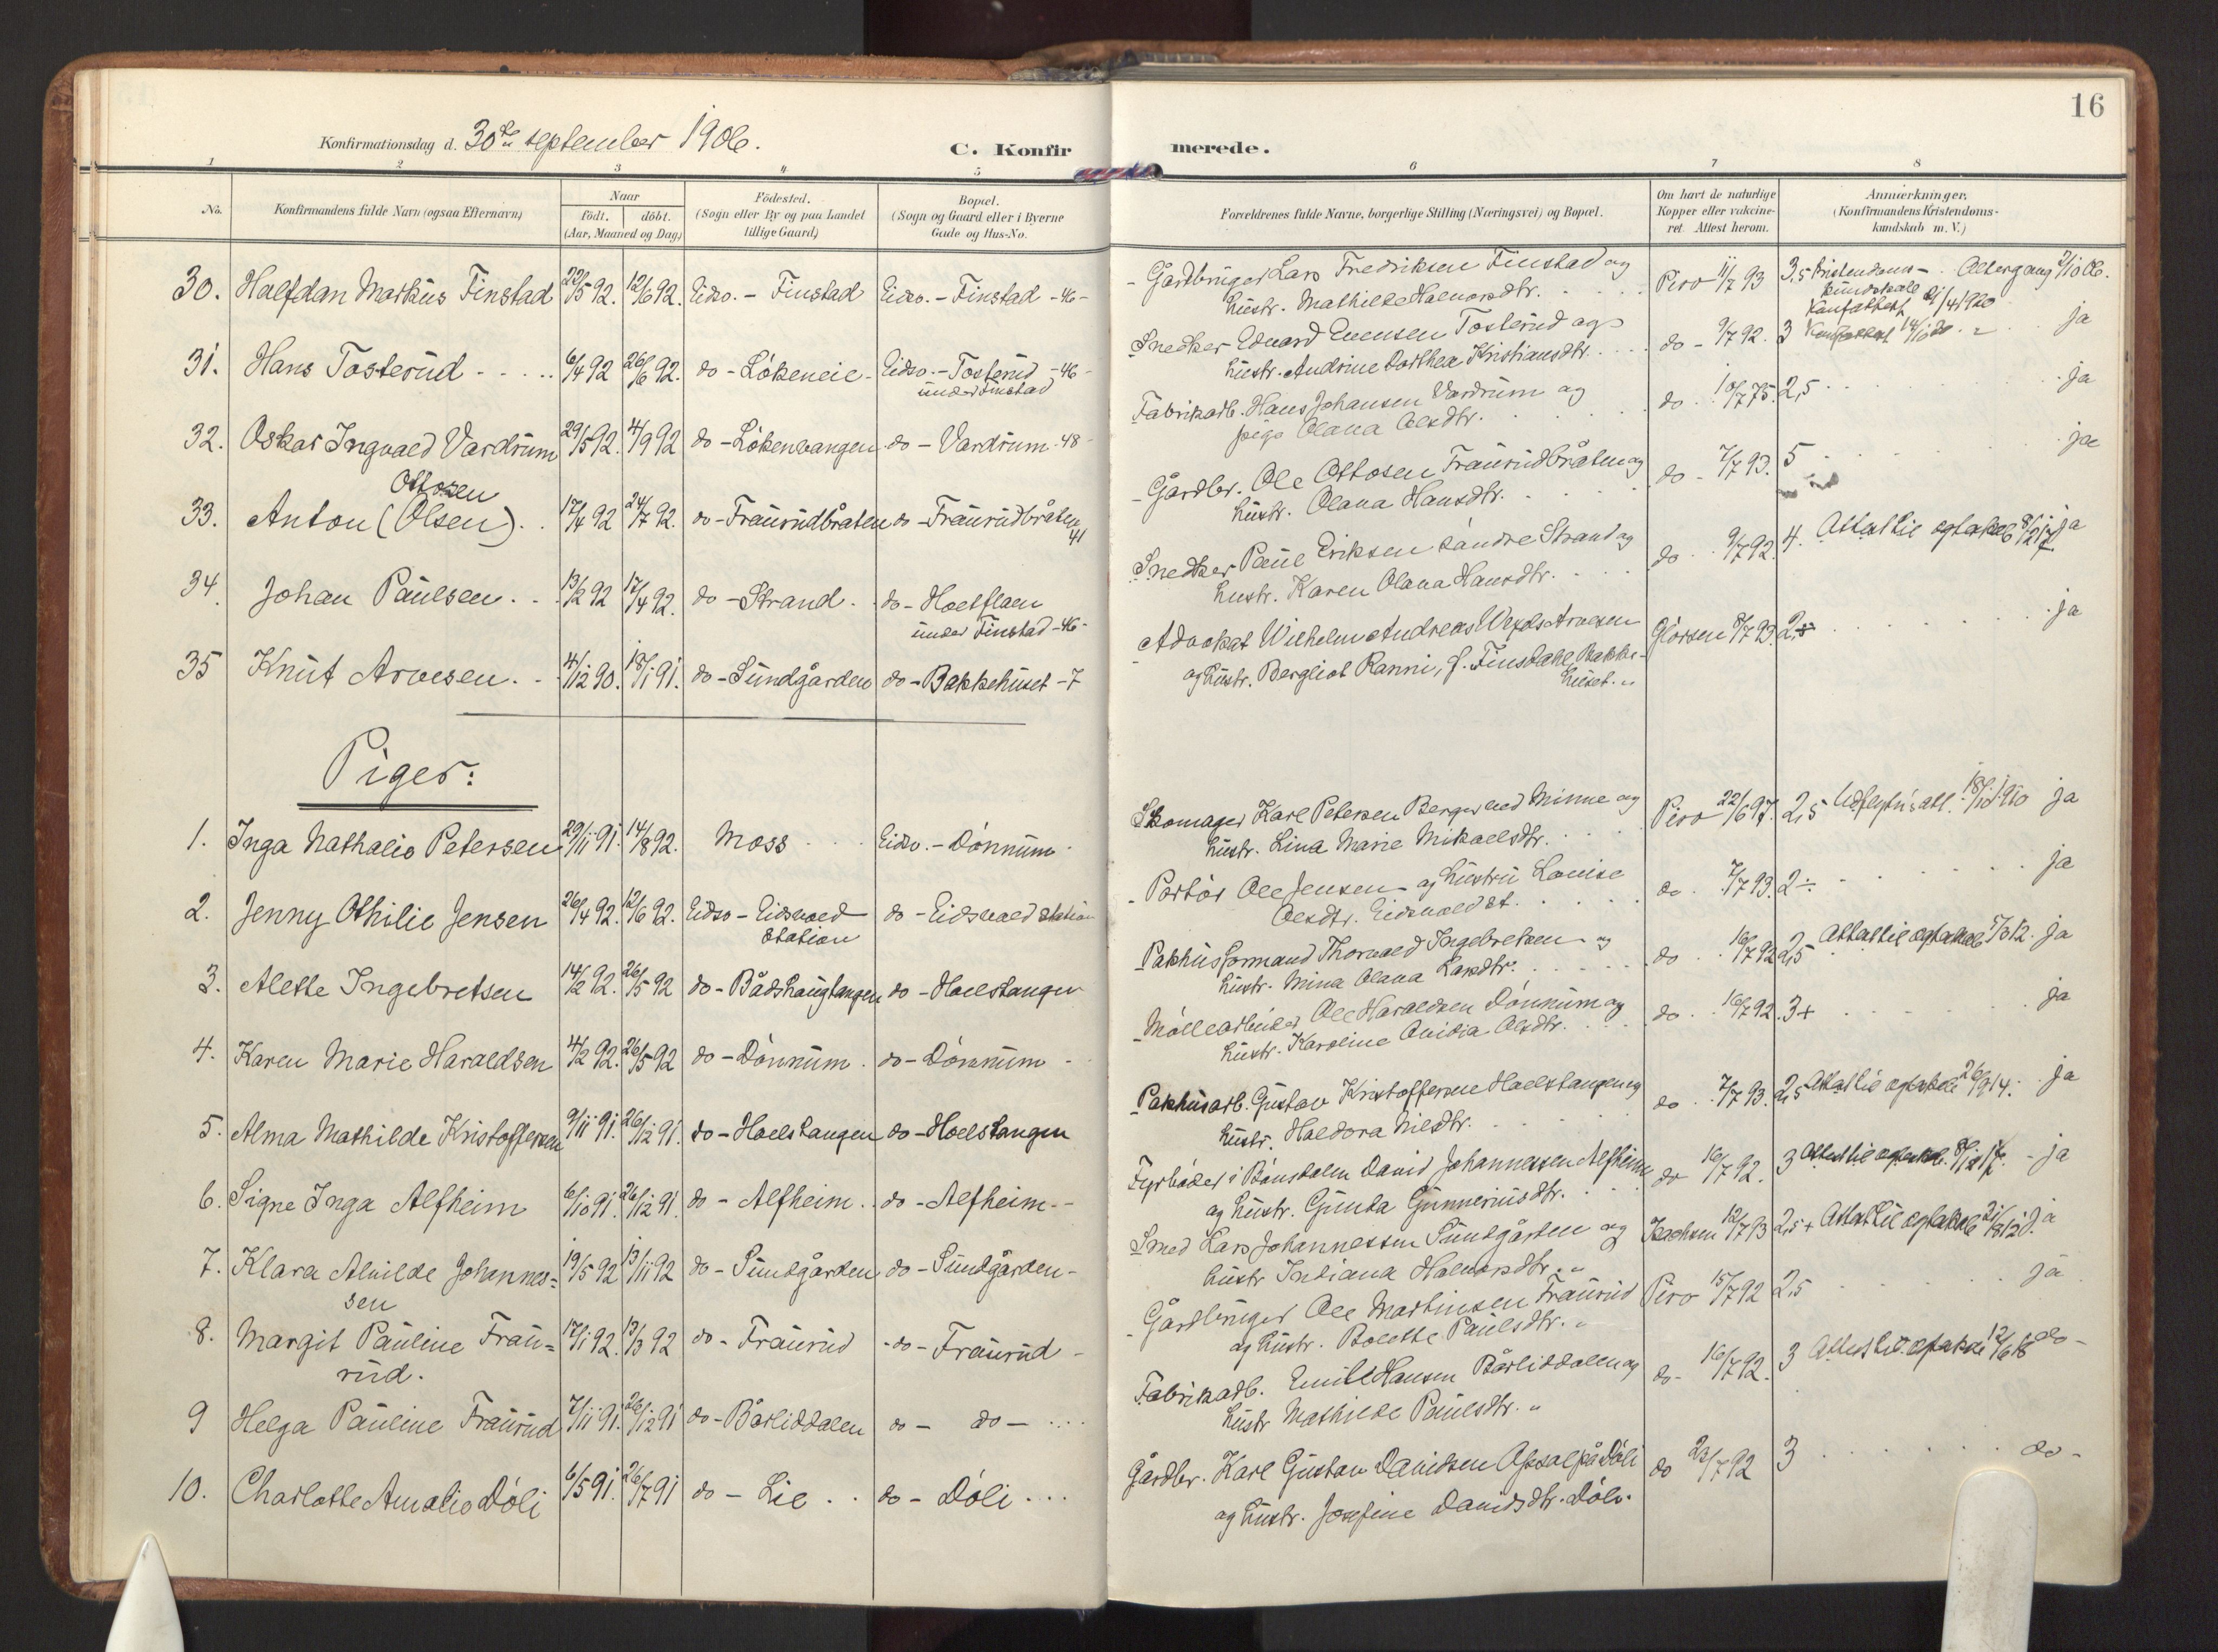 16
Konfirmationsdag d. 30te september 1906.
C. Konfirmerede.
1 2 3 4 5 6 7 8
No.
Konfirmandens fulde Navn (ogsaa Efternavn)
Naar
födt. döbt.
(Aar, Maaned og Dag)
Födested.
(Sogn eller By og paa Landet
tillige Gaard)
Bopæl.
(Sogn og Gaard eller i Byerne
Gade og Hus-No.
Forældrenes fulde Navne, borgerlige Stilling (Næringsvei) og Bopæl.
Om havt de naturlige
Kopper eller vakcine-
ret. Attest herom.
Anmærkninger.
(Konfirmandens Kristendoms-
kundskab m. V.)
30. Halfdan Markus Finstad 22/5 92. 12/6 92. Eidsv. - Finstad Eidsv. - Finstad -46-
Gårdbruger Lars Fredriksen Finstad og
hustr. Mathilde Halvorsdtr. Piro 11/7 93 3,5 Kristendoms- Altergang 7/10 06.
kundskab
31. Hans Tosterud 6/4 92 26/6 92. do - Lökeneie - Eidsv. - Tosterud -46-
under Finstad
Snedker Edvard Evensen Tosterud og
hustr. Andrine Dorthea Kristiansdtr. do - 9/7 92. 3 ja
32. Oskar Ingvald Vardrum 29/5 92. 4/9 92 do - Lökenvangen do - Vardrum -48-
Fabrikarb. Hans Johansen Vardrum og
pige Olava Olsdtr. do 2,5 ja
Ottosen
33. Anton (Olsen). 17/4 92 24/7 92. do - Fraurudbråten do - Fraurudbråten
41
Gårdbr. Ole Ottosen Fraurudbråten og
hustr. Olava Hansdtr. do - 7/7 93. 5 ja
34. Johan Paulsen 13/2 92 17/4 92. do - Strand. do - Hoelflaen
under Finstad -46-
Snedker Paul Eriksen søndre Strand og
hustr. Karen Olava Hansdtr. do 9/7 92. 4. ja
35 Knut Arvesen 4/12 90. 18/1 91. do - Sundgården do - Bakkehuset -7
Advokat Wilhelm Andreas Wexels Arvesen
og hustr. Bergliot Ranni, f. Finsdahl, Bakke-
huset. 9/7 93. ja
Piger:
1. Inga Nathalie Petersen 29/11 91. 14/8 92. Moss Eidsv. - Dönnum
Skomager Karl Petersen Berger ved Minne og
hustr. Lina Marie Mikaelsdtr. Piro 22/6 97. 2,5 ja
2. Jenny Othilie Jensen 26/4 92. 12/6 92. Eidsv - Eidsvold do - Eidsvold station
station
Portör Ole Jensen og hustru Louise
Olsdtr. Eidsvold st. do 7/7 93. 2÷ ja
3. Alette Ingebretsen 14/2 92. 26/5 92 do - Bådshaugtangen do - Hoelstangen
Pakhusformand Thorvald Ingebretsen og
hustr. Mina Olava Larsdtr. do 16/7 92 2,5 Attest til ægteskab ja
4. Karen Marie Haraldsen 4/2 92. 26/5 92 do - Dönnum. do - Dönnum
Möllearbeider Ole Haraldsen Dönnum og
hustr. Karoline Ovidia Olsdtr. do 16/7 92. 3+ ja
5. Alma Mathilde Kristoffersen 9/11 91. 26/12 91. do - Hoelstangen do - Hoelstangen
Pakhusarb. Gustav Kristoffersen Hoelstangen og
hustr. Haldora Nilsdtr. do 7/7 93. 2,5 Attest til ægteskab 26/9 14. ja
6. Signe Inga Alfheim 6/10 91. 26/12 91. do - Alfheim. do - Alfheim -
Fyrböder i Bönsdalen David Johannessen Alfheim
og hustr. Gunda Gunneriusdtr. do 16/7 92. 3 Attest til ægteskab ja
7. Klara Alvilde Johannes- 19/5 92 13/11 92 do - Sundgården do - Sundgården -
sen
Smed Lars Johannessen Sundgården og
hustr Indiana Halvorsdtr. 12/7 93 2,5+ Attest til ægteskab ja
8. Margit Pauline Frau- 17/1 92. 13/3 92 do - Fraurud - do - Fraurud -
rud.
Gårdbruger Ole Martinsen Fraurud
og hustr. Bolette Paulsdtr. Piro 15/7 92 2,5 ja
9 Helga Pauline Fraurud 7/11 91. 26/12 91 do - Bårliddalen do - do -
Fabrikarb. Emil Hansen Bårliddalen og
hustr Mathilde Paulsdtr. do - 16/7 92. 3 Attest til ægteskab 12/6 18 do -
10. Charlotte Amalie Döli 6/5 91. 26/7 91 do - Lie do - Döli
Gårdbr. Karl Gustav Davidsen Opsal på Döli
og hustr. Josefine Davidsdtr. Döli. do 23/7 92 3 do -